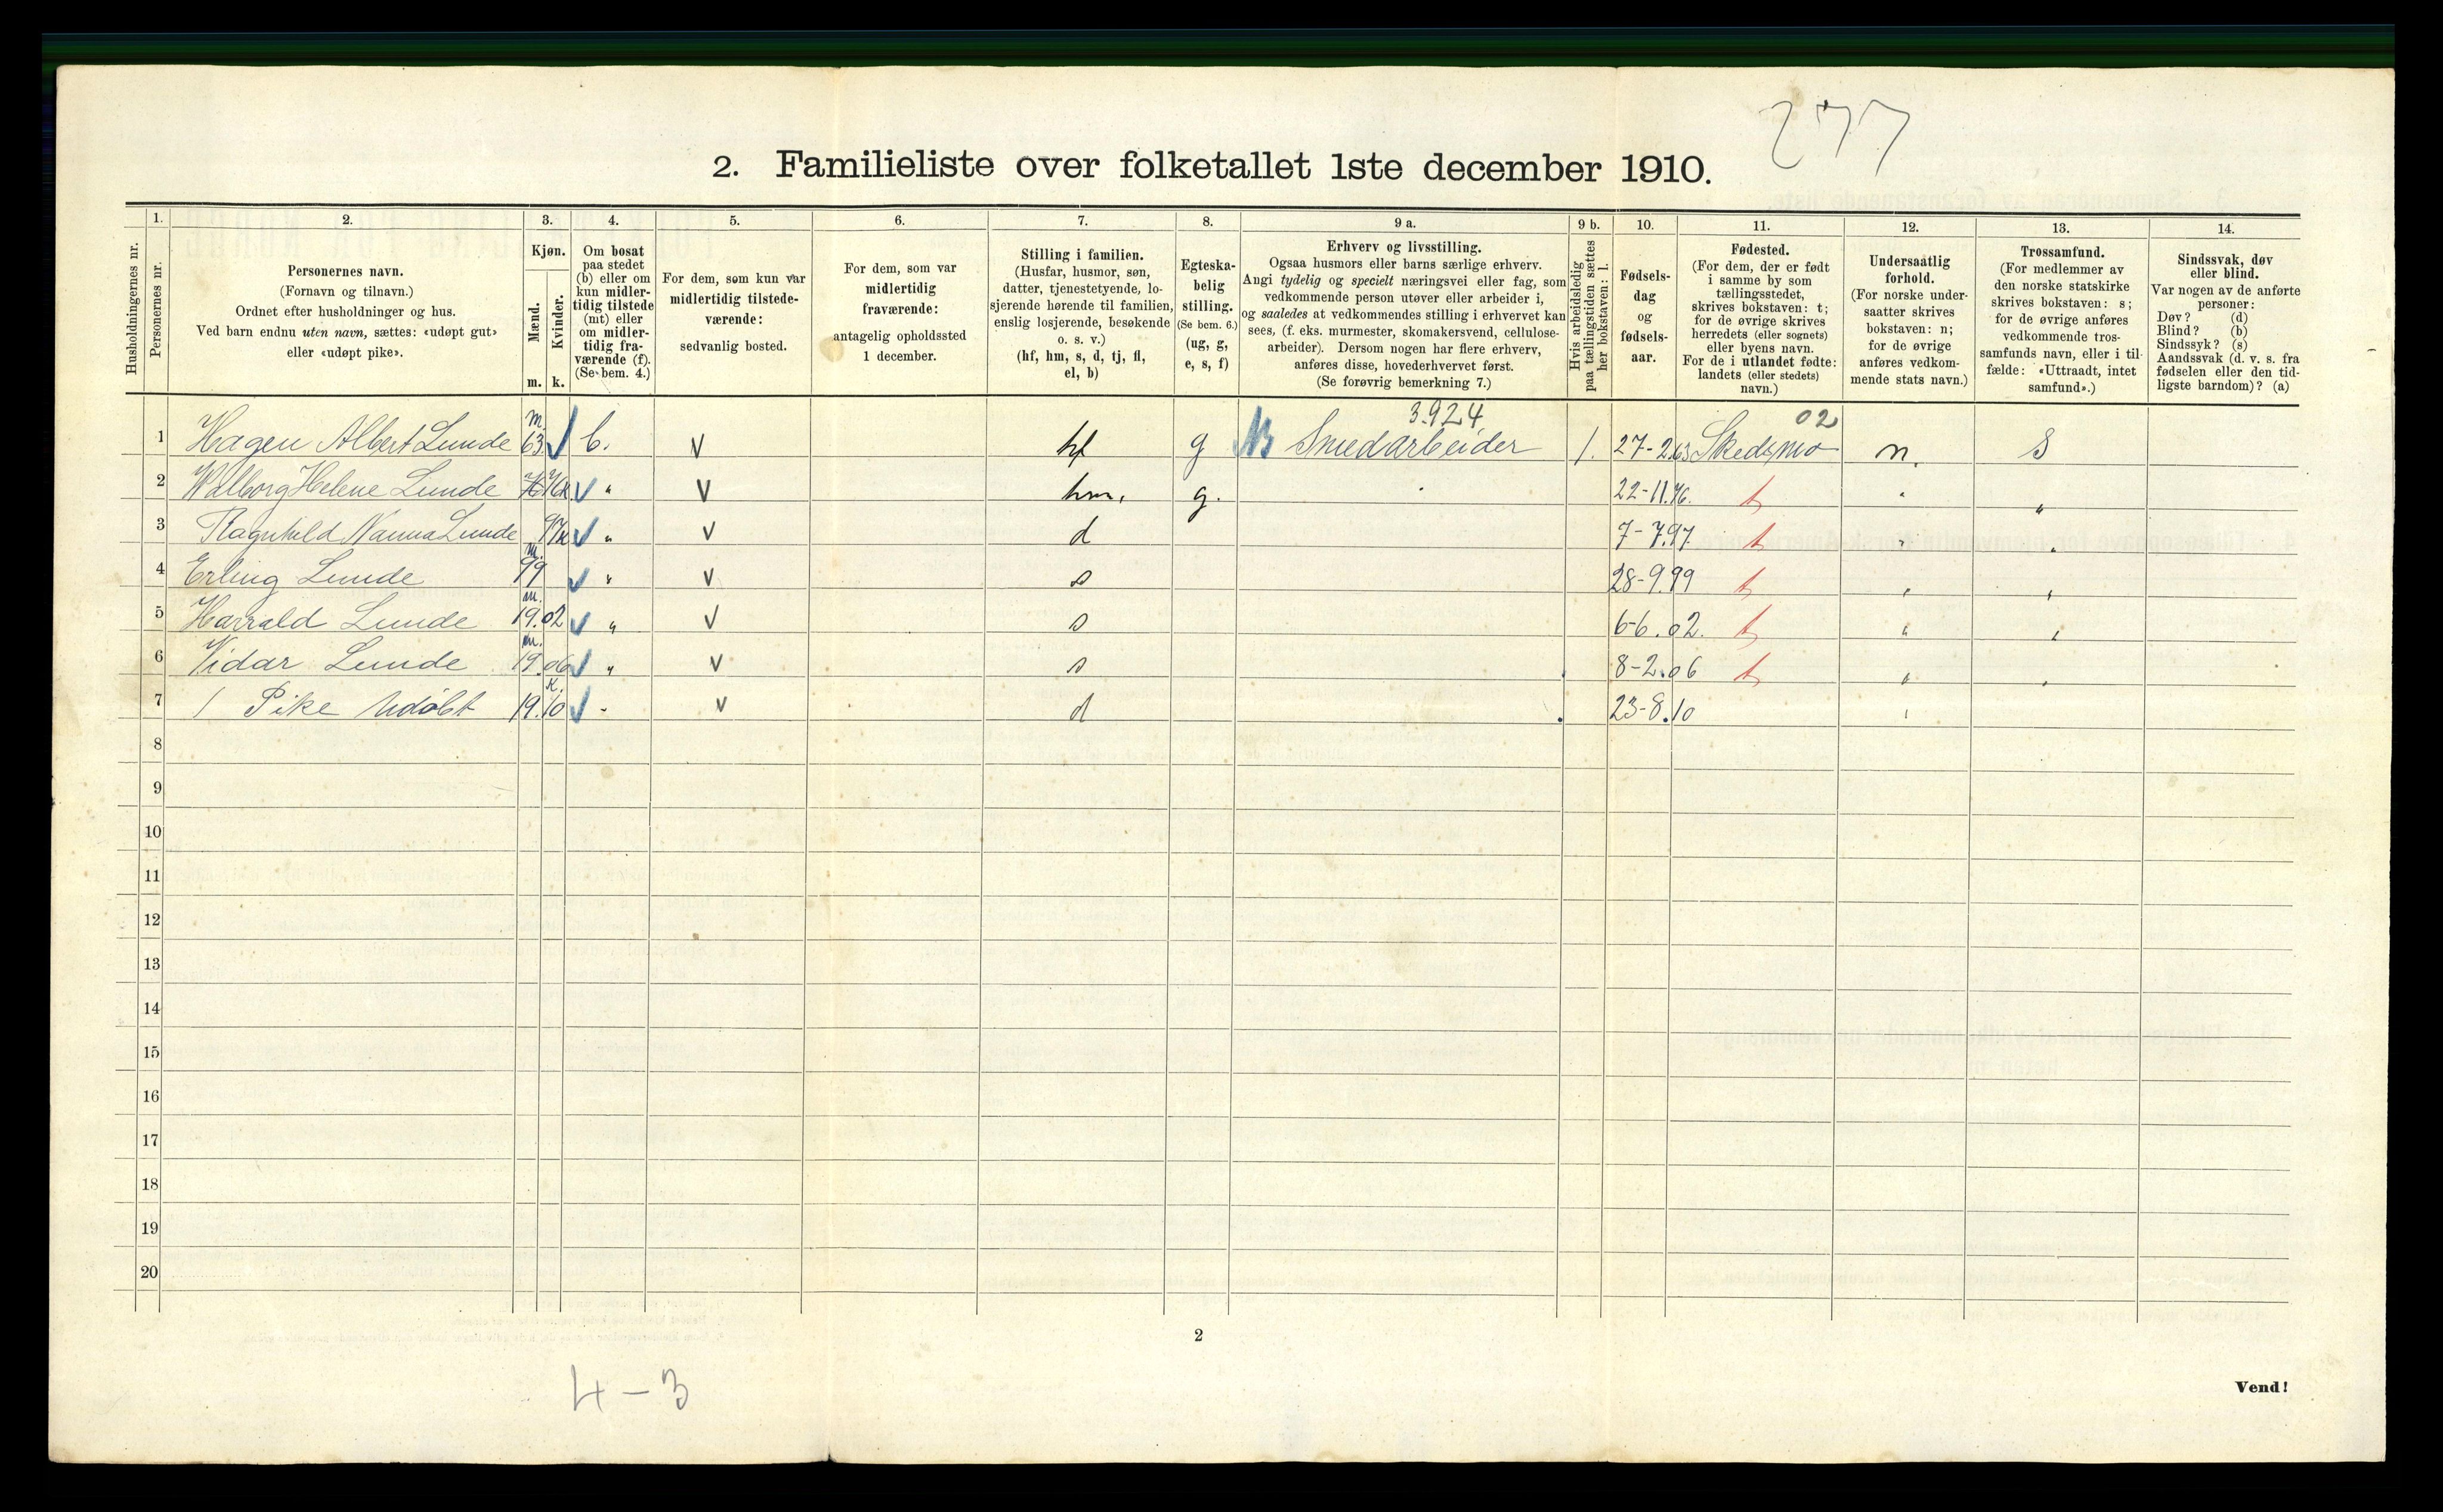 277
2. Familieliste over folketallet 1ste december 1910.
Husholdningernes nr.
1.
Personernes nr.
2.
Personernes navn.
(Fornavn og tilnavn.)
Ordnet efter husholdninger og hus.
Ved barn endnu uten navn, sættes: «udøpt gut»
eller «udøpt pike».
3.
Kjøn.
Mænd.
Kvinder.
m. k.
4.
Om bosat
paa stedet
(b) eller om
kun midler-
tidig tilstede
(mt) eller
om midler-
tidig fra-
værende (f).
(Se bem. 4.)
5.
For dem, som kun var
midlertidig tilstede-
værende:
sedvanlig bosted.
6.
For dem, som var
midlertidig
fraværende:
antagelig opholdssted
1 december.
7.
Stilling i familien.
(Husfar, husmor, søn,
datter, tjenestetyende, lo-
sjerende hørende til familien,
enslig losjerende, besøkende
o. s. v.)
(hf, hm, s, d, tj, fl,
el, b)
8.
Egteska-
belig
stilling.
(Se bem. 6.)
(ug, g,
e, s, f)
9 a.
Erhverv og livsstilling.
Ogsaa husmors eller barns særlige erhverv.
Angi tydelig og specielt næringsvei eller fag, som
vedkommende person utøver eller arbeider i,
og saaledes at vedkommendes stilling i erhvervet kan
sees, (f. eks. murmester, skomakersvend, cellulose-
arbeider). Dersom nogen har flere erhverv,
anføres disse, hovederhvervet først.
(Se forøvrig bemerkning 7.)
9 b.
Hvis arbeidsledig
paa tællingstiden sættes
her bokstaven: l.
10.
Fødsels-
dag
og
fødsels-
aar.
11.
Fødested.
(For dem, der er født
i samme by som
tællingsstedet,
skrives bokstaven: t;
for de øvrige skrives
herredets (eller sognets)
eller byens navn.
For de i utlandet fødte:
landets (eller stedets)
navn.)
12.
Undersaatlig
forhold.
(For norske under-
saatter skrives
bokstaven: n;
for de øvrige
anføres vedkom-
mende stats navn.)
13.
Trossamfund.
(For medlemmer av
den norske statskirke
skrives bokstaven: s;
for de øvrige anføres
vedkommende tros-
samfunds navn, eller i til-
fælde: «Uttraadt, intet
samfund».)
14.
Sindssvak, døv
eller blind.
Var nogen av de anførte
personer:
Døv? (d)
Blind? (b)
Sindssyk? (s)
Aandssvak (d. v. s. fra
fødselen eller den tid-
ligste barndom)? (a)
3.924 02
1 Hagen Albert Lunde m. 63 b. v hf g Smedarbeider l. 27-2.63 Skedsmo n. s
2 Walborg Helene Lunde 76 k v " v hm. g. 22-11.76. t " "
3 Ragnhild Nanna Lunde 97 k v " v d 7-7.97 t " "
4 Erling Lunde m. 99 v " v s 28-9.99 t " "
5 Harrald Lunde m. 19.02 v " v s 6-6.02. t " "
6 Vidar Lunde m. 19.06 v " v s 8-2.06 t " "
7 1 Pike Udøbt k. 19.10 v " v d 23-8.10 "
8
9
10
11
12
13
14
15
16
17
18
19
20
2
4-3
Vend!